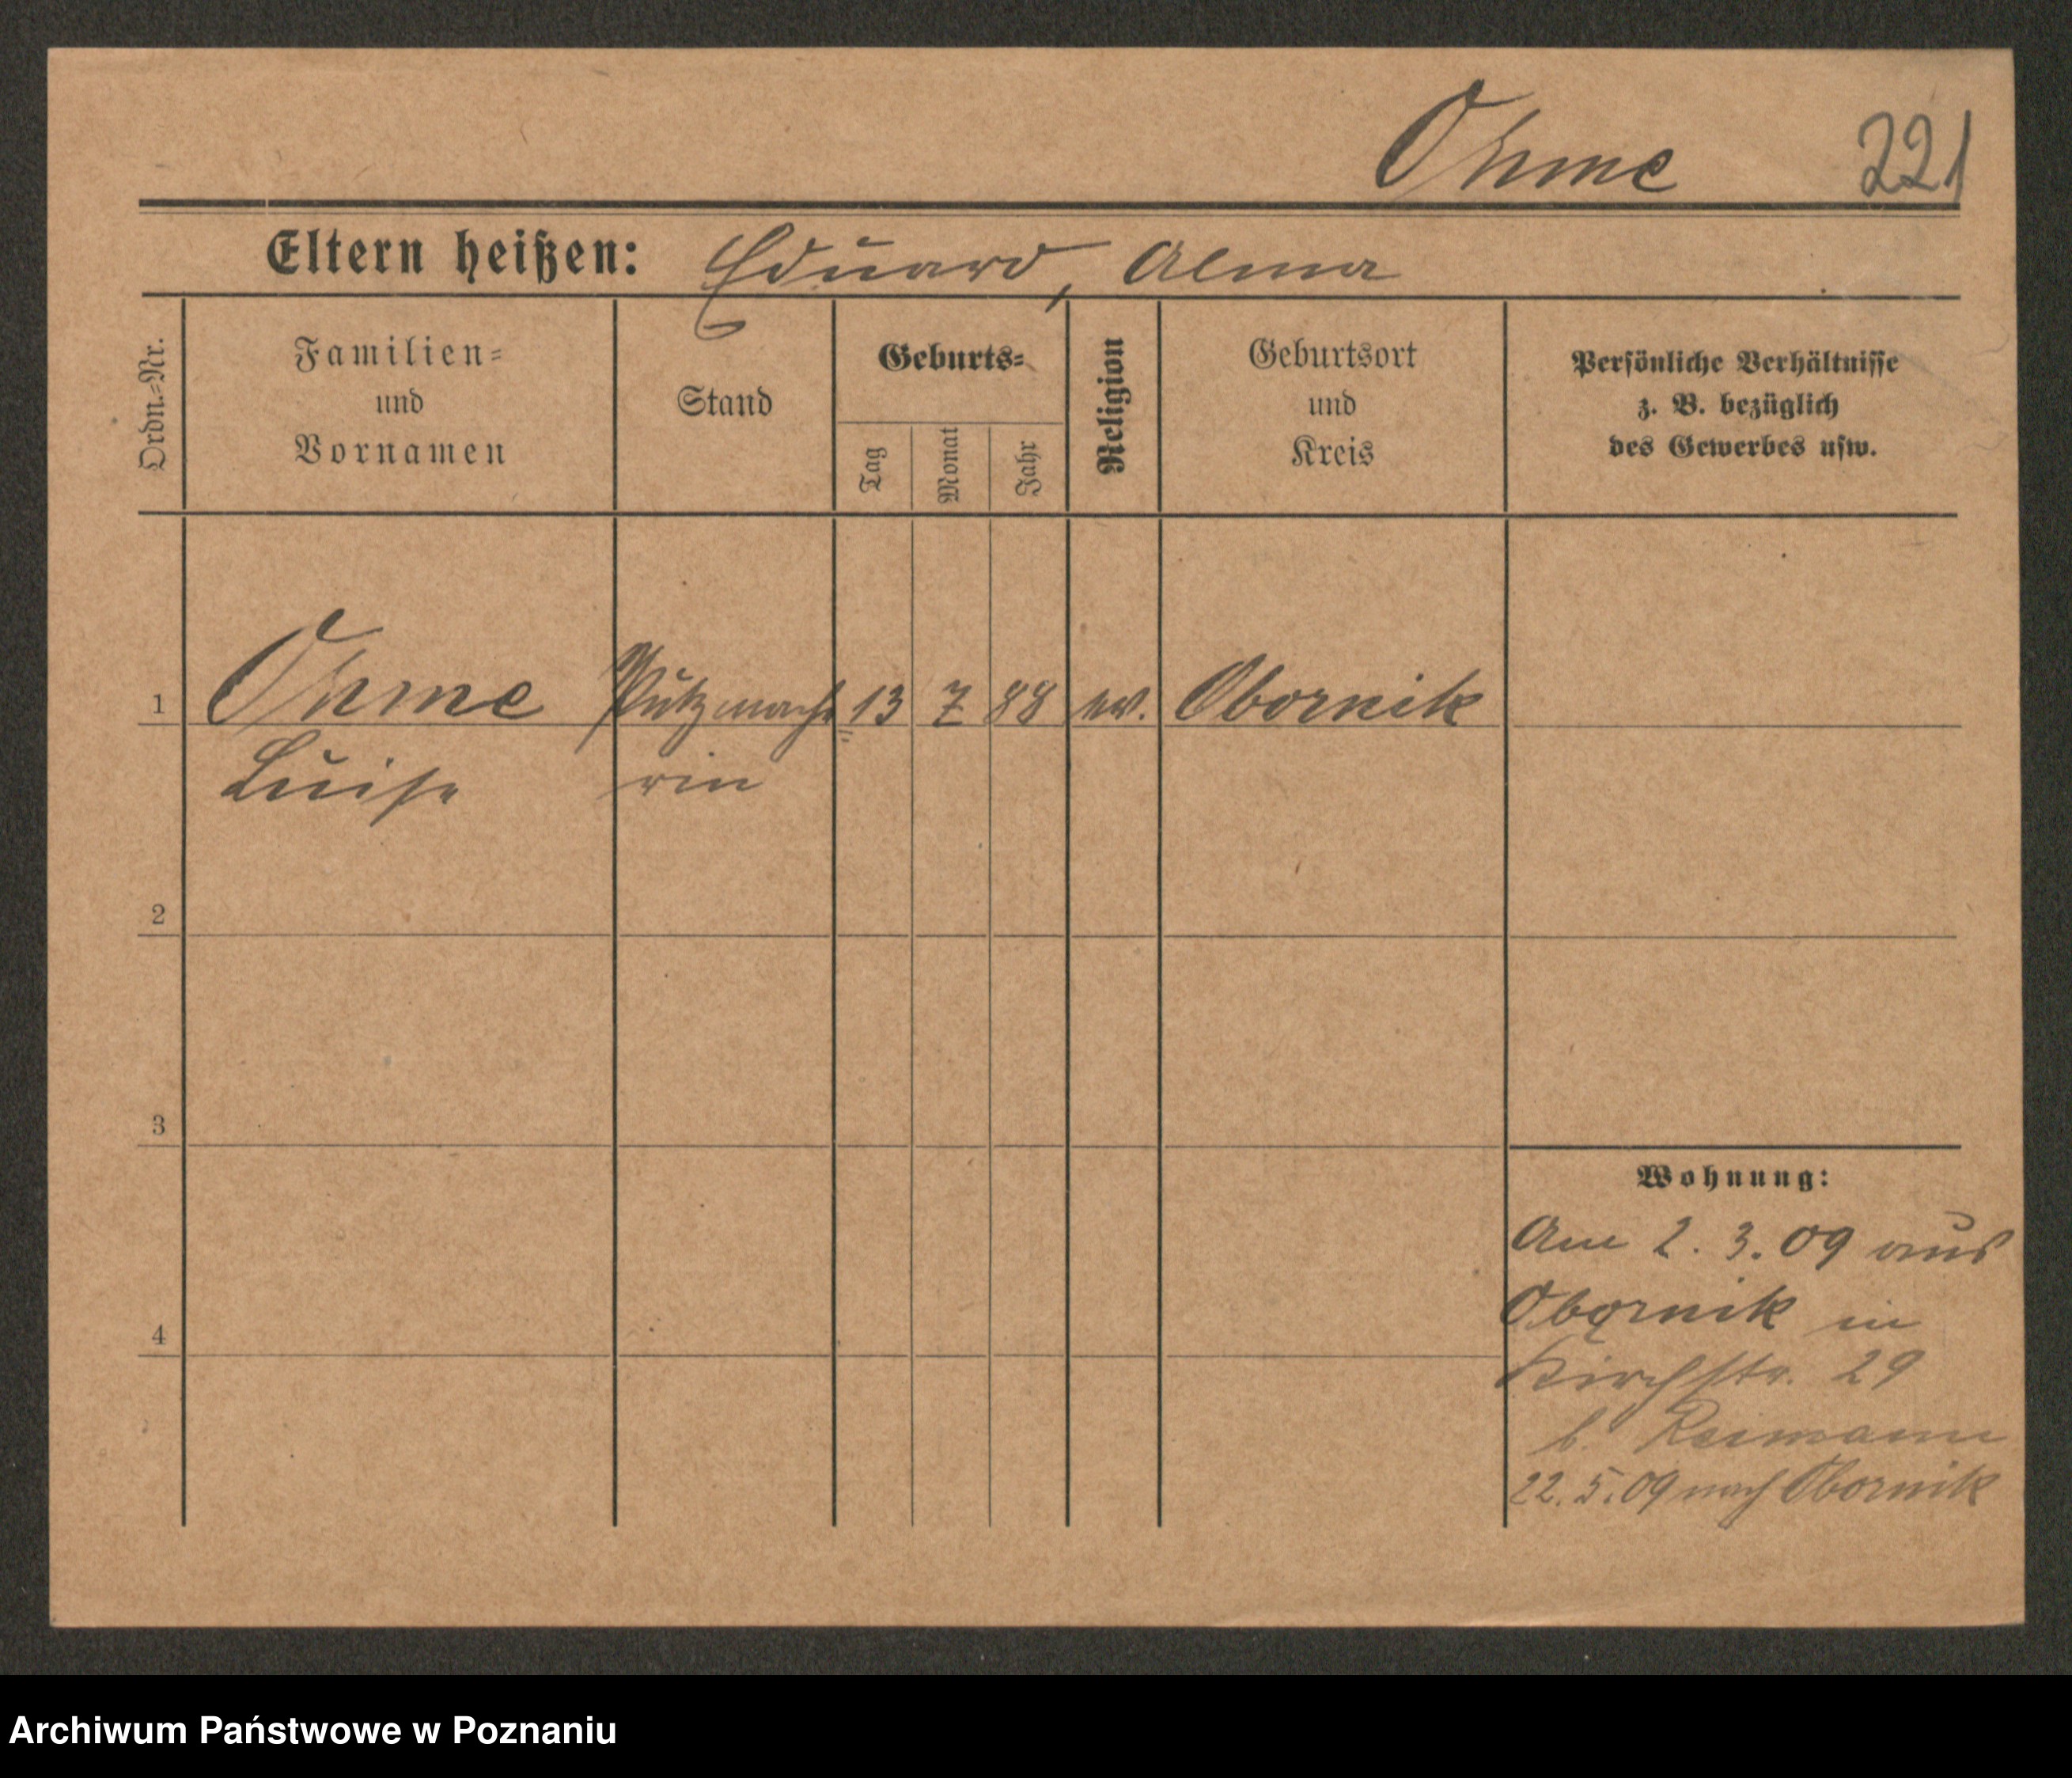 Ohme 221
Eltern heißen: Eduard, Alma
Ordn.-Nr.
Familien-
und
Vornamen
Stand
Geburts-
Tag
Monat
Jahr
Religion
Geburtsort
und
Kreis
Persönliche Verhältnisse
z. B. bezüglich
des Gewerbes usw.
1 Ohme Putzmache 13 7 88 ev. Obornik
Luise rin
2
3
4
Wohnung:
Am 2. 3. 09 aus
Obornik in
Kirchstr. 29
b. Reimann
22. 5. 09 nach Obornik
Archiwum Państwowe w Poznaniu